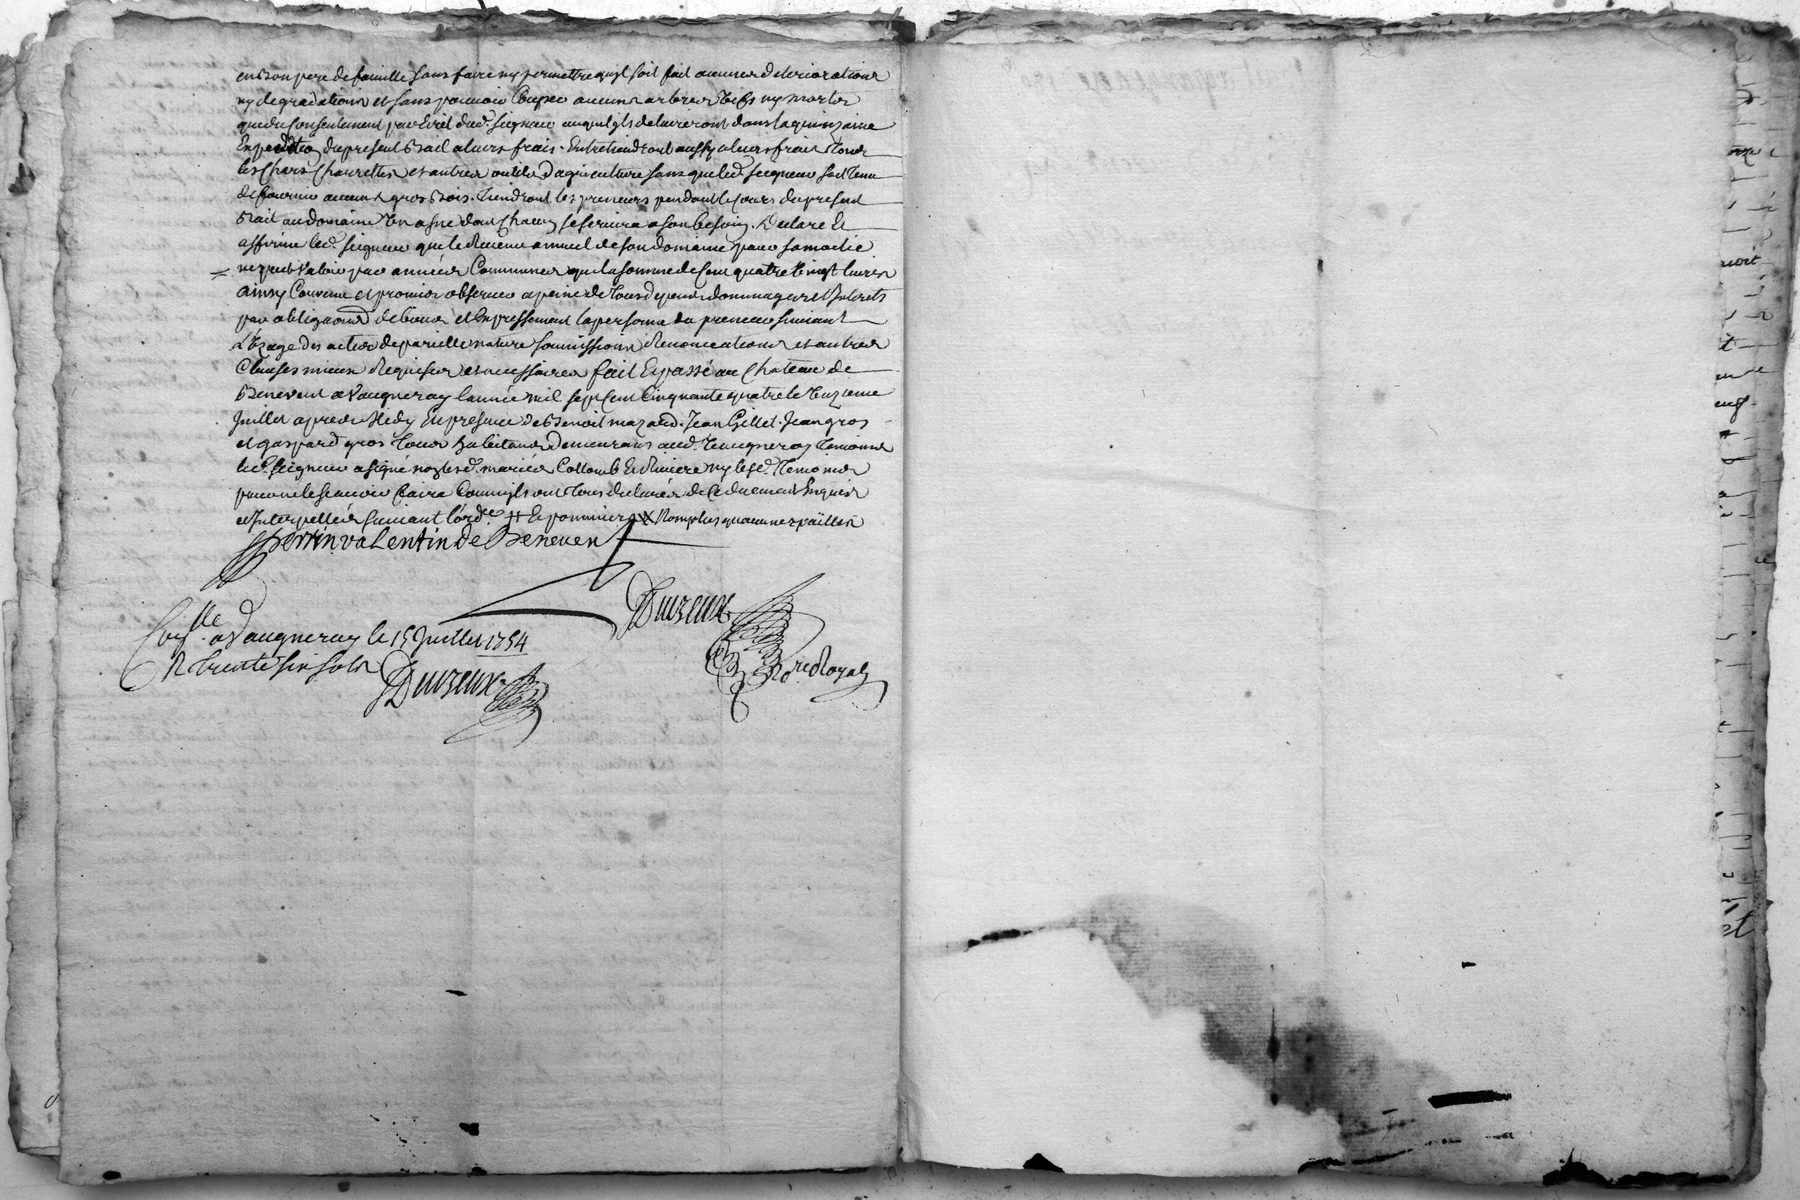 en bon pere de famille sans faire ny permettre quyl soit fait aucunes deteriorations
ny degradations et sans pouvoir Couper aucuns arbres vifs ny morts
que du Consentement par Ecrit dud. seigneur auquel yls delivreront dans la quinzaine
Expedition du present Bail a leurs frais. Entretiendront aussy a leurs frais tous
les Chars Charrettes et autres outils d'agriculture sans que led. seigneur soit tenu
de fournir aucuns gros Bois. Tiendront les preneurs pendant le Cours du present
Bail au domaine Un asne dont Chacun se servira a son besoin. Declare et
affirme led. seigneur que le Revenu annuel de son domaine pour sa moitié
ne peut valoir par années Communes que la somme de Cent quatre vingt livres
ainsy Convenu et promis observer a peine de tous depens dommages et Interets
par obligaons de biens et Expressement la personne du preneur suivant
L'Usage des actes de pareille nature soumissions Renonciations et autres
Clauses mieux Requises et necessaires fait Et passé au Chateau de
Benevent a Vaugneray l'année mil sept Cent Cinquante quatre le
Juillet apres Midy En presence de Benoit mazard. Jean Gillet. Jean gros
et gaspard gros tous habitans Demeurans aud. Vaugneray temoins
led. seigneur a signé non lesd. mariés Collomb Et Riviere ny lesd. temoins
pour ne le scavoir faire Comme yls ont tous declarés de Ce duement Enquis
et Interpellés suivant l'orde. # Et pommiers X Non plus qu'aucunes pailles
Perrin valentin de Beneven
Duizeux
No.re Royal
Con.lle a Vaugneray le 15 Juillet 1754
R trente six sols
Duizeux